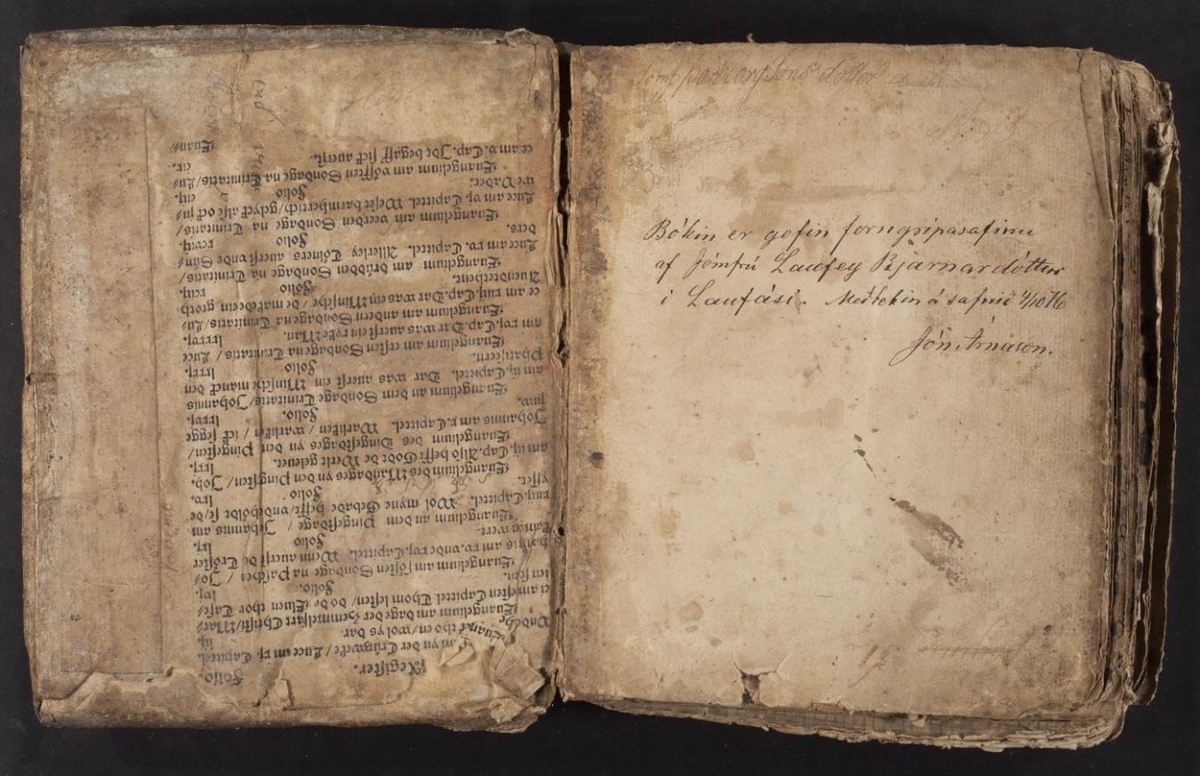 Register.
Folio.
m yn der Crützweke/ Luce am xj. Capittel.
tho en/ wol ys dar. lij.
Euangelium am dage der Hemmelfart Christi/ Mar=
ci am lesten Capittel Thom lesten/ do de Eluen thor Tafe=
len seten. Folio. lvj.
Euangelium am sösten Sondage na Paschen / Jo=
hannis am xv. vnde xvj. Capittel. Wenn auerst de Tröster
kamen wert. Folio lxj.
Euangelium an dem Pingestdage / Johannis am
xiiij. Capittel. Wol myne Gebade hefft/ vnd holdet se/ de
ysset. Folio lxv.
Euangelium des Mandages yn den Pingsten/ Joh.
am iij. Cap. Also hefft Godt de Werlt geleuet. lxxj.
Euangelium des Dingstdages yn den Pingesten/
Johannis am x. Capittel. Warliken/ warliken/ ick segge
juw. Folio. lxxvj.
Euangelium an dem Sondage Trinitatis Johannis
am iij. Capittel. Dar was auerst ein Minsche manck den
Phariseern. Folio
Euangelium am ersten Sondage na Trinitatis / Luce
am xvj. Cap. Dar was auerst ein ryke Man.
Euangelium am andern Sondage na Trinitatis/ Lu=
ce am xiiij. Cap. Dar was ein Minsche/ de makede ein groth
Auentetent. Folio xcij.
Euangelium am drüdden Sondage na Trinitatis/
Luce am xv. Capittel. Allerley Tölners auerst vnde Sün=
ders. Folio xcvij.
Euangelium am veerden Sondage na Trinitatis/
Luce am vj. Capittel. Weset barmhertich/ gelyck alse ock ju=
we Vader. Folio ciij.
Euangelium am vöfften Sondage na Trinitatis/ Lu=
ce am v. Cap. Jdt begaff sick auerst. cix.
Euan=
Bókin er gefin forngripasafninu
af Jómfrú Laufey Bjarnardóttur
í Laufási. Meðtekin á safnið 4/10 76
Jón Árnason.